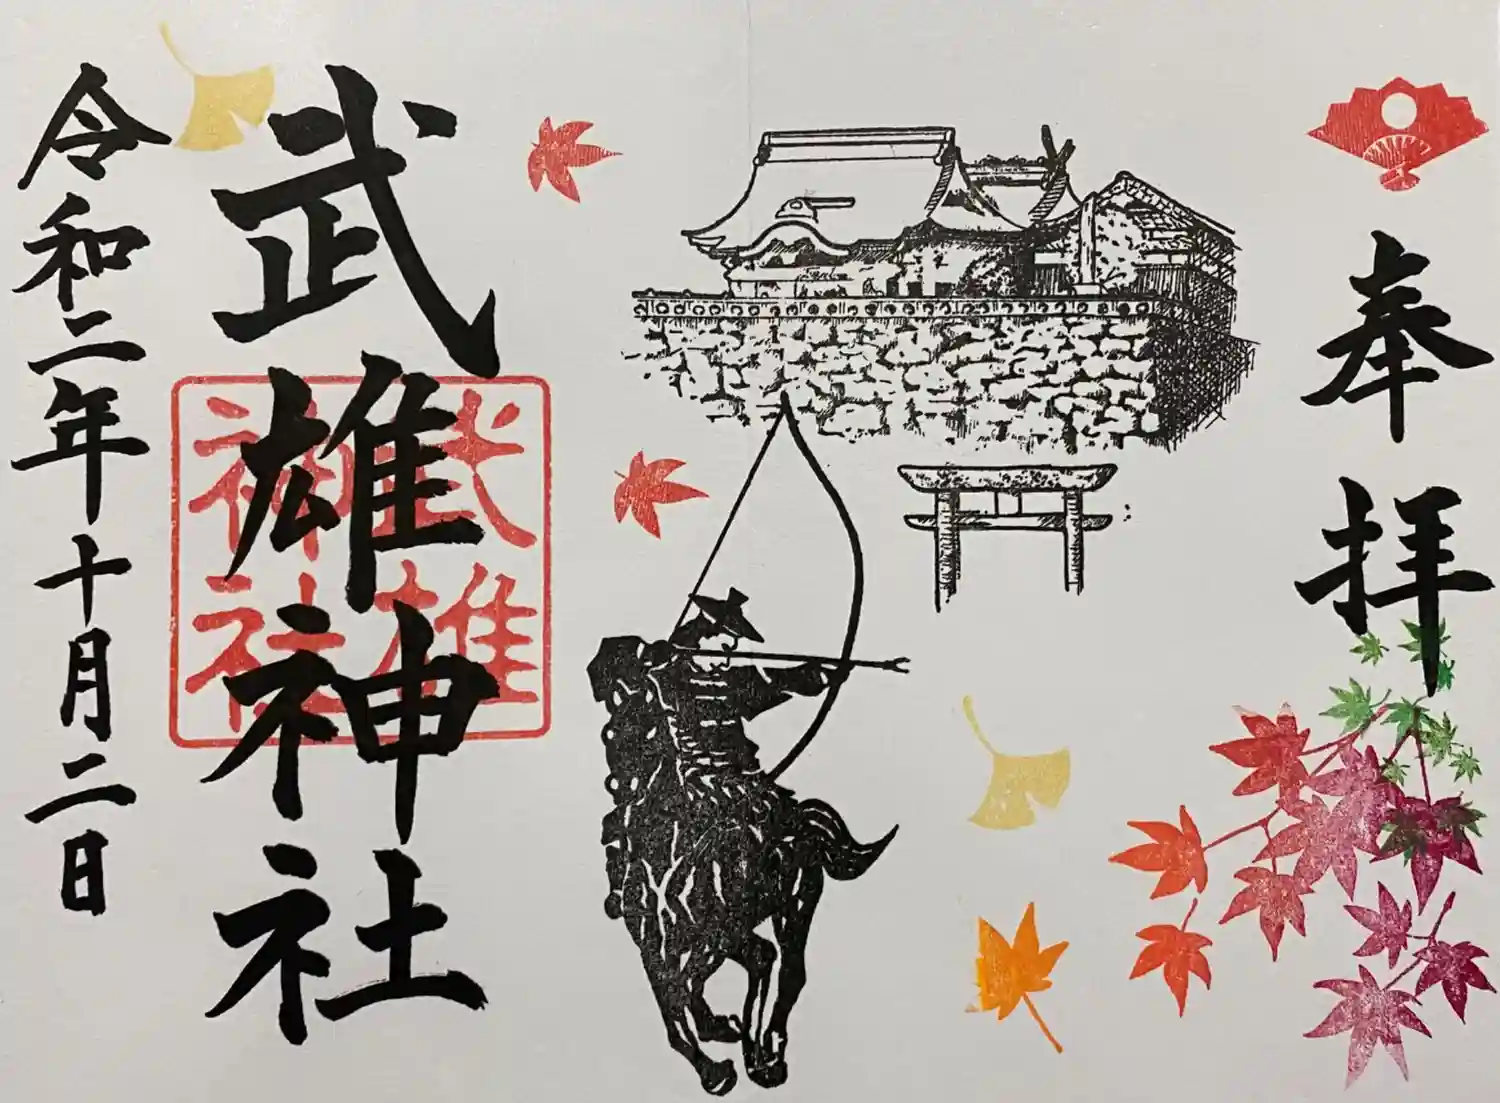 奉拝
武雄神社
武雄
神社
令和二年十月二日